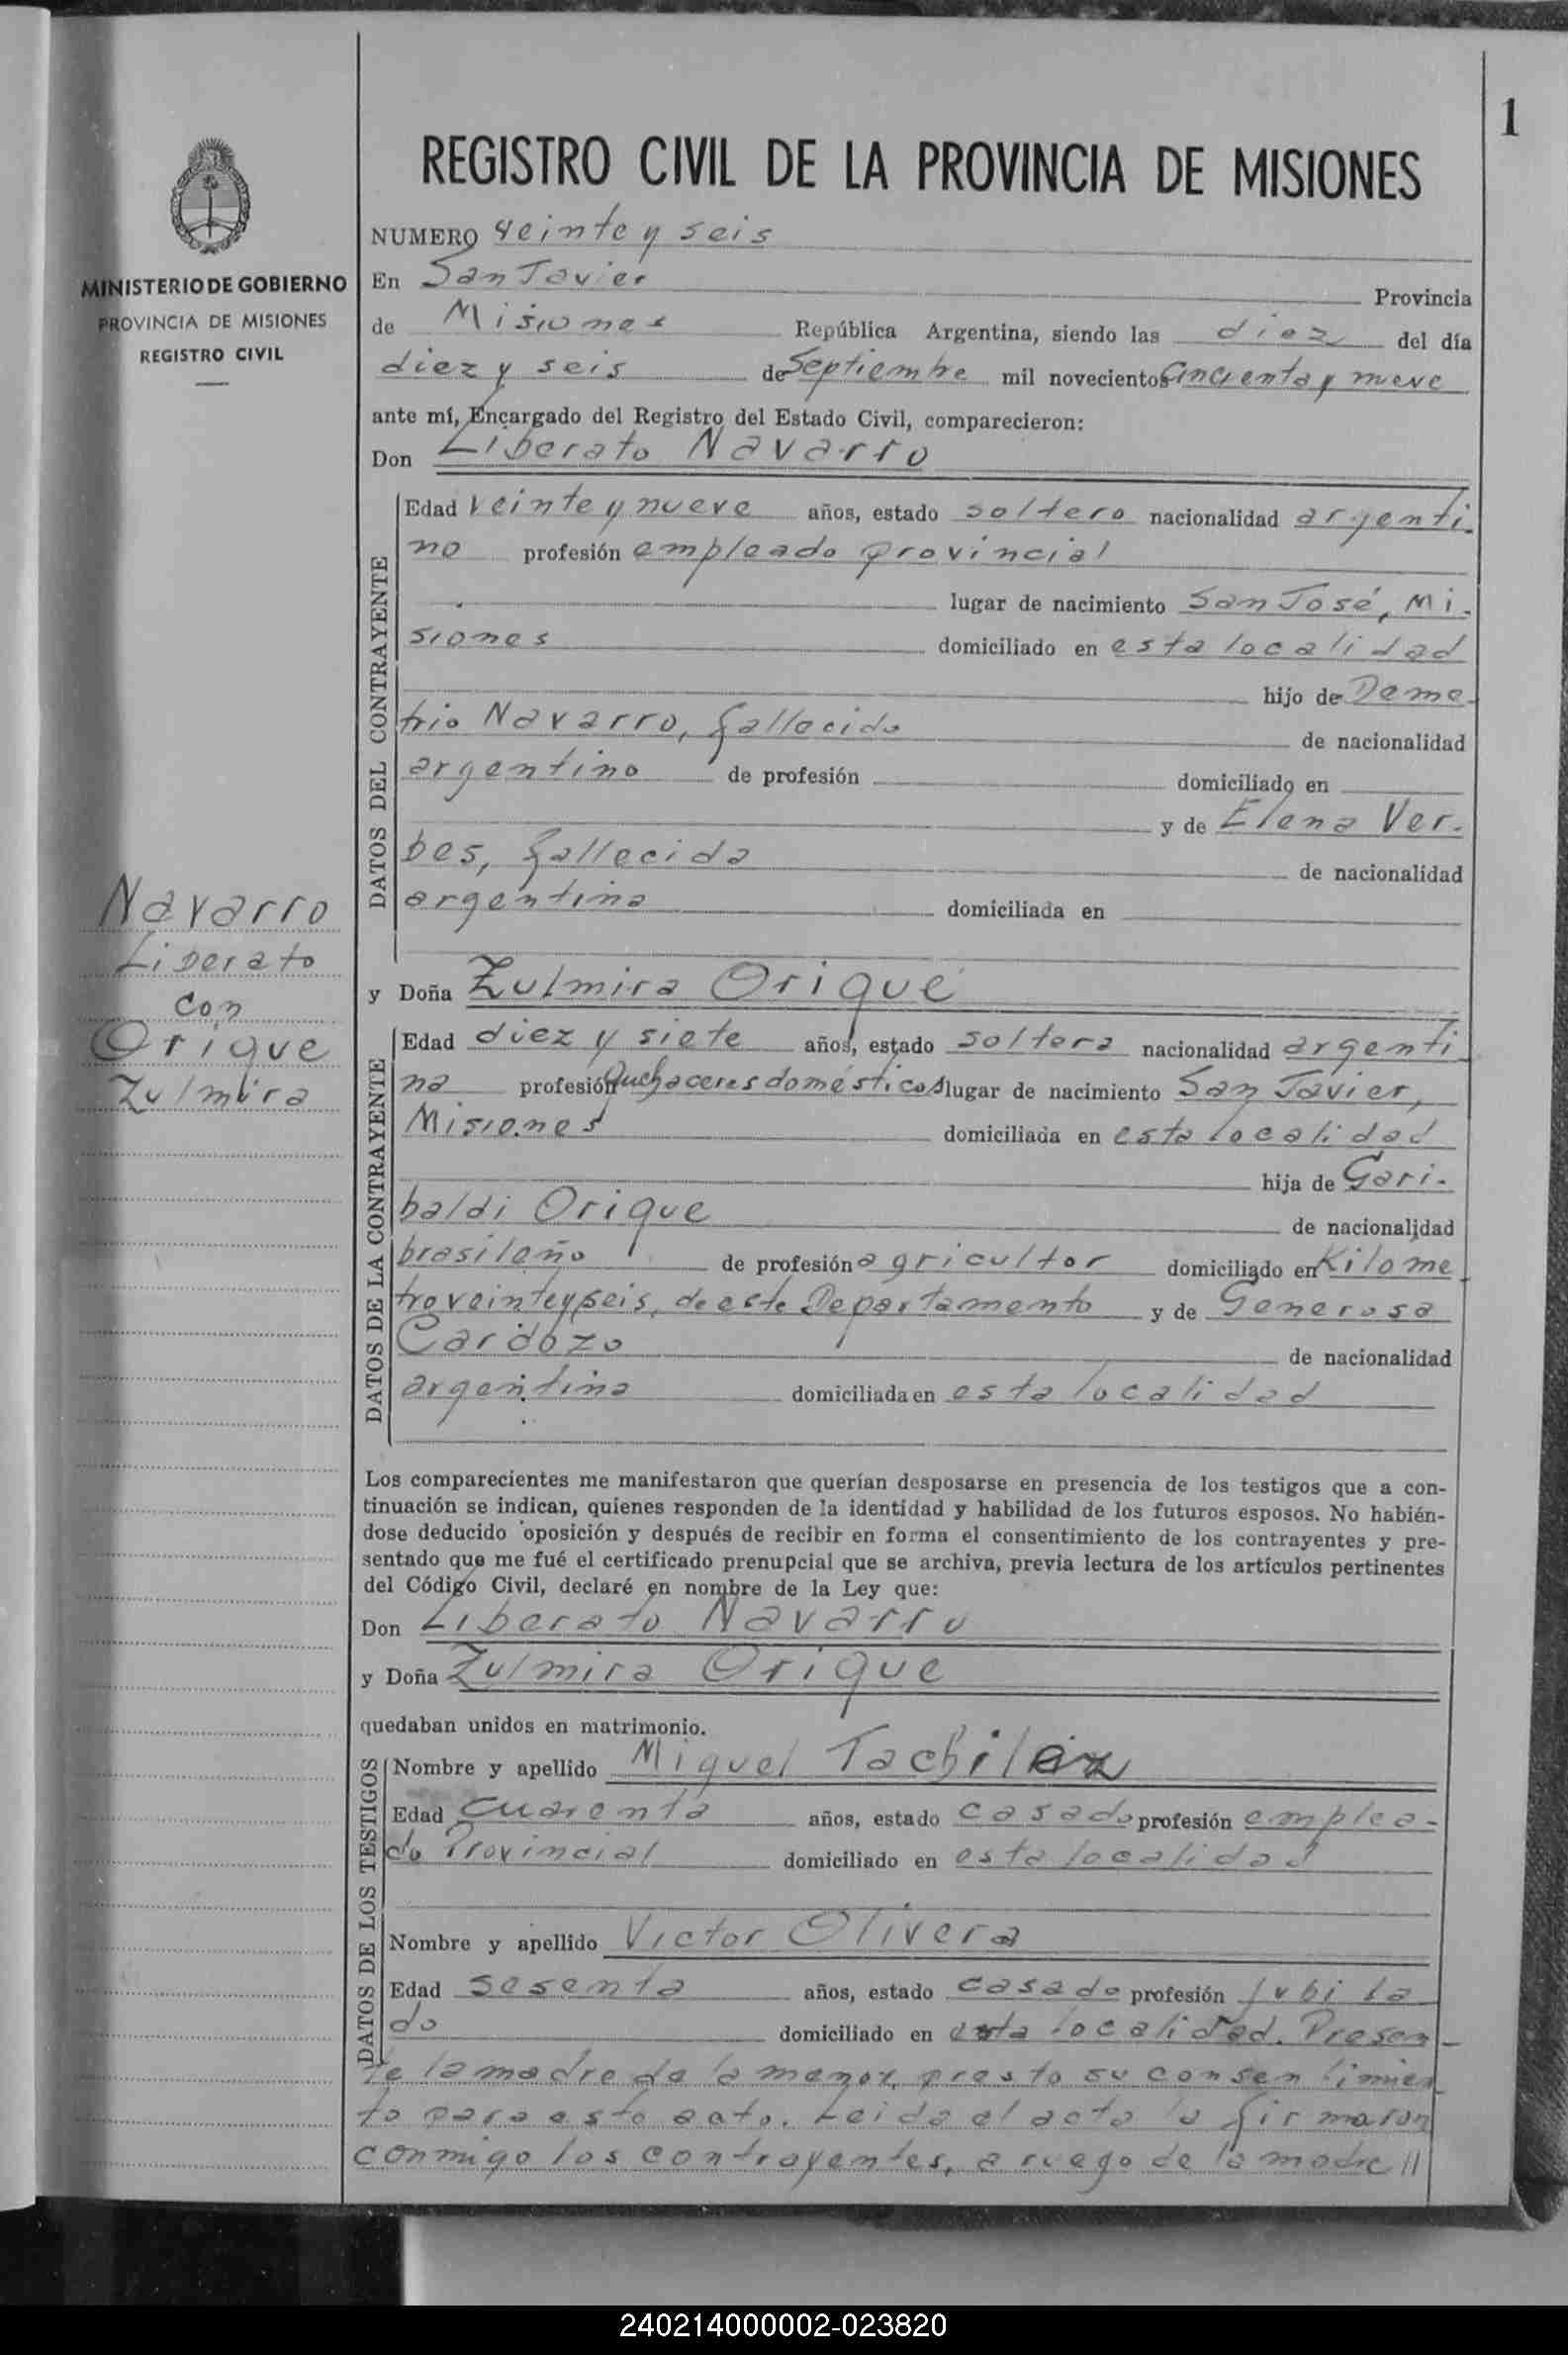 1
REGISTRO CIVIL DE LA PROVINCIA DE MISIONES
MINISTERIO DE GOBIERNO
PROVINCIA DE MISIONES
REGISTRO CIVIL
NUMERO veinte y seis
En San Javier Provincia
de Misiones República Argentina, siendo las diez del día
diez y seis de Septiembre mil novecientos cincuenta y nueve
ante mí, Encargado del Registro del Estado Civil, comparecieron:
Don Liberato Navarro
DATOS DEL CONTRAYENTE
Edad veinte y nueve años, estado soltero nacionalidad argenti-
no profesión empleado provincial
lugar de nacimiento San José, Mi-
siones domiciliado en esta localidad
hijo de Deme-
trio Navarro, fallecido de nacionalidad
argentino de profesión domiciliado en
y de Elena Ver-
bes, fallecida de nacionalidad
argentina domiciliada en
Navarro
Liberato
con
Orique
Zulmira
y Doña Zulmira Orique
DATOS DE LA CONTRAYENTE
Edad diez y siete años, estado soltera nacionalidad argenti
na profesión Quehaceres domésticos lugar de nacimiento San Javier,
Misiones domiciliada en esta localidad
hija de Gari-
baldi Orique de nacionalidad
brasileño de profesión agricultor domiciliado en Kilome
tro veinte y seis, de este Departamento y de Generosa
Cardozo de nacionalidad
argentina domiciliada en esta localidad
Los comparecientes me manifestaron que querían desposarse en presencia de los testigos que a con-
tinuación se indican, quienes responden de la identidad y habilidad de los futuros esposos. No habién-
dose deducido oposición y después de recibir en forma el consentimiento de los contrayentes y pre-
sentado que me fué el certificado prenupcial que se archiva, previa lectura de los artículos pertinentes
del Código Civil, declaré en nombre de la Ley que:
Don Liberato Navarro
y Doña Zulmira Orique
quedaban unidos en matrimonio.
DATOS DE LOS TESTIGOS
Nombre y apellido Miguel
Edad cuarenta años, estado casado profesión emplea-
do Provincial domiciliado en esta localidad
Nombre y apellido Victor Olivera
Edad sesenta años, estado casado profesión jubila
do domiciliado en esta localidad. Presen-
te la madre de la menor, presta su consentimien-
to para este acto. Leida el acta la firmaron
conmigo los contrayentes, a ruego de la madre //
240214000002-023820